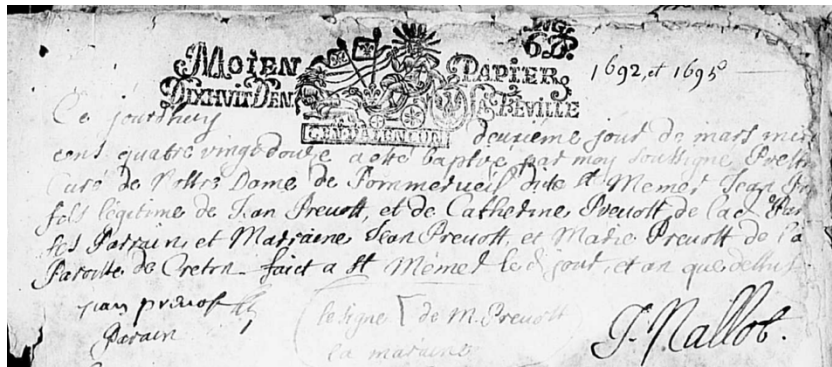 LNG.
6D.
MOIEN PAPIER
DIXHVIT DEN LA FEVILLE
1692, et 1695
GEN DALENCON
Ce jourdhuy deuxieme jour de mars mil
cens quatre vingt douze a esté baptizé par moy soussigné Prestre
Curé de Nostre Dame de Pommereuil dite St Memer Jean
fils légitime de Jean Prevost, et de Catherine Prevost de lad. Par
ses Parrain et Marraine Jean Prevost, et Marie Prevost de la
Paroisse de Creton faict a St Mémer le d jour, et an que dessus.
jean prevost
Parain
le signe de M. Prevost
la maraine
J. Nallot.